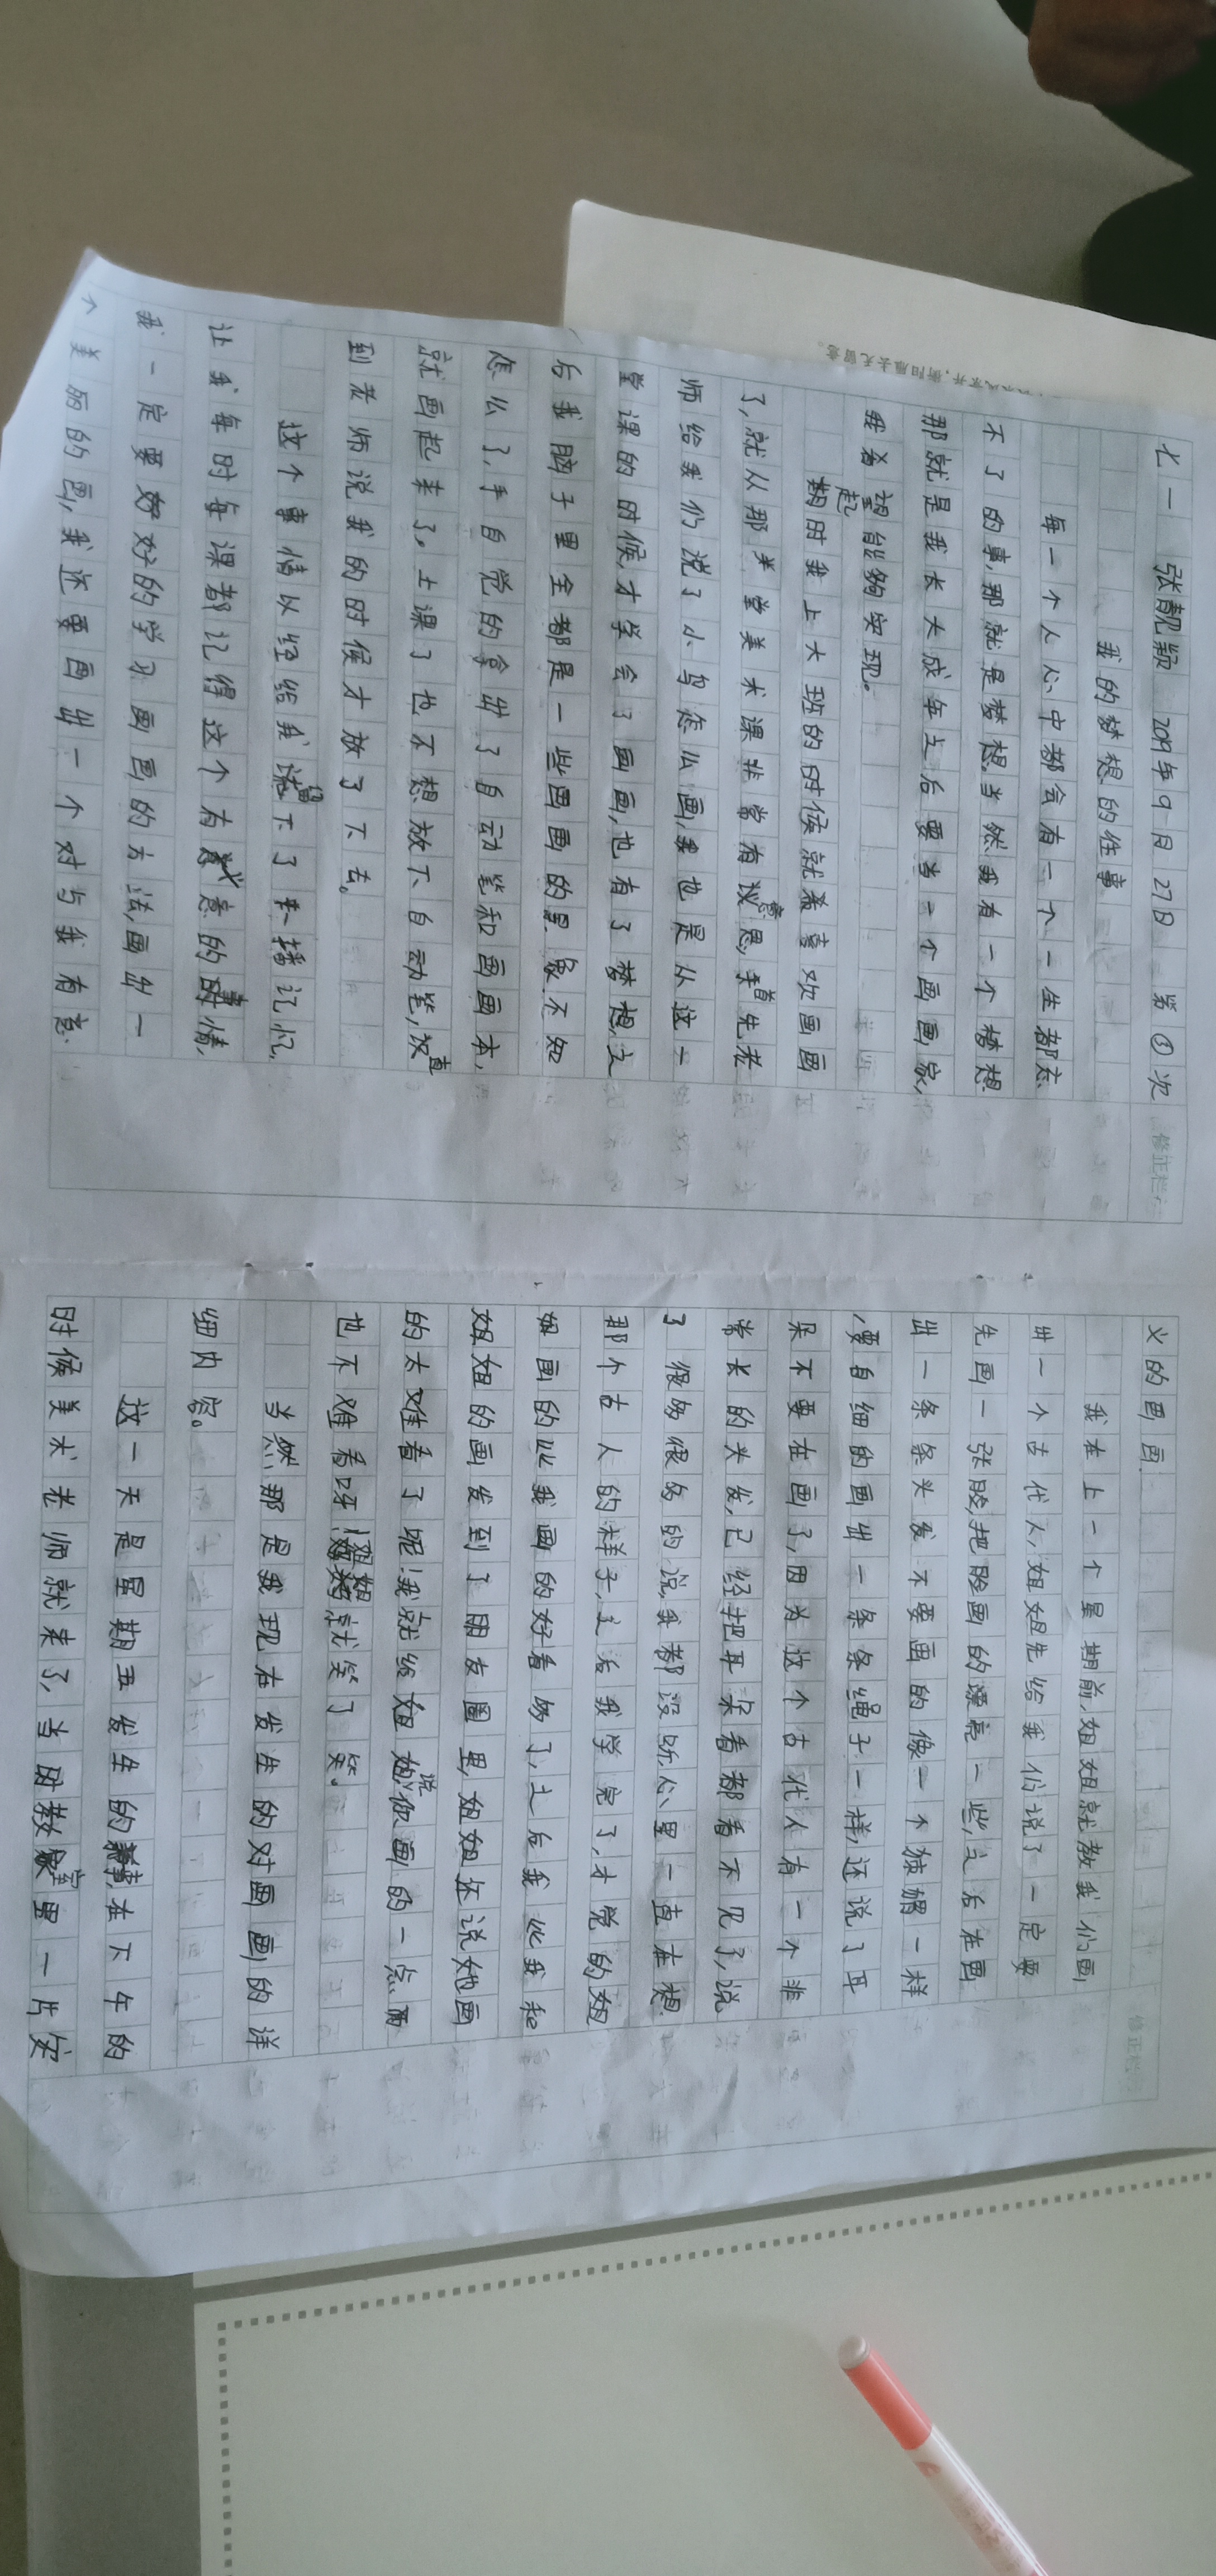 七一 张靓颖 2019年9月27日 第①次
修正栏
我的梦想的往事
每一个人心中都会有一个一生都忘
不了的事,那就是梦想。当然我有一个梦想
那就是我长大成年之后要当一个画画家,
我希望能够实现。
起
期时我上大班的时候就喜欢画画
了,就从那堂美术课非常有意思,首先老
师给我们说了小鸟怎么画,我也是从这一
堂课的时候,才学会了画画,也有了梦想,之
后我脑子里全都是一些图画的景象不知
怎么了,手自觉的拿出了自动笔和画画本,
就画起来了。上课了也不想放下自动笔,直
到老师说我的时候才放了下去。
这个事情以经给我留下了来播记忆,
让我每时每课都记得这个有意的事情,
我一定要好好的学习画画的方法,画出一
个美丽的画,我还要画出一个对与我有意
义的画画.
修正栏
我在上一个星期前,姐姐就教我们画
出一个古代人,姐姐先给我们说了一定要
先画一张脸,把脸画的漂亮一些,之后在画
出一条条头发不要画的像一个独辫一样
,要自细的画出一条条绳子一样,还说了耳
朵不要在画了,因为这个古代人有一个非
常长的头发,已经把耳朵看都看不见了,说
了很多很多的说,我都没听,心里一直在想
那个古人的样子,之后我学完了,才觉的姐
姐画的比我画的好看多了,之后我比我和
姐姐的画发到了朋友圈里,姐姐还说她画
的太难看了呢!我就给姐姐说你画的一点而
也不难看呀!姐姐就笑了笑。
当然,那是我现在发生的对画画的详
细内容。
这一天是星期五发生的事,在下午的
时候美术老师就来了,当时教室里一片安